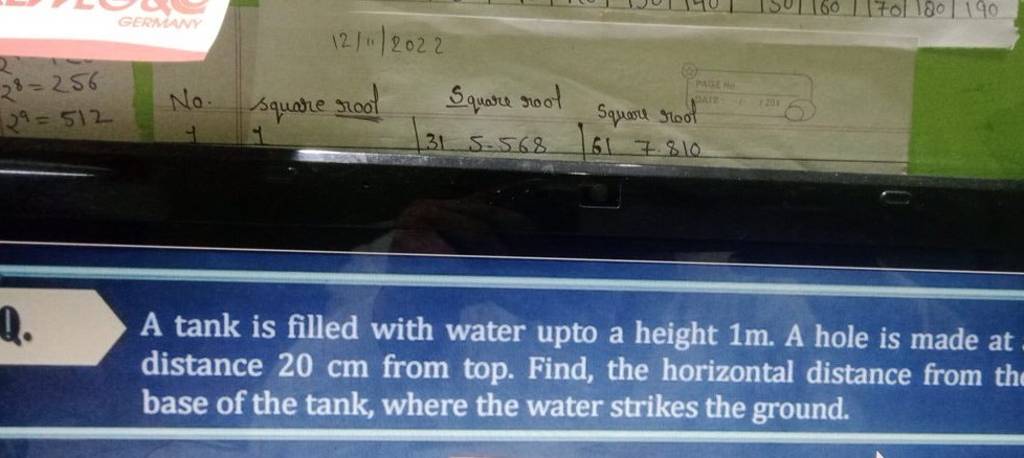 GERMANY
130 140 150 160 170 180 190
12/11/2022
2⁸ = 256
2⁹ = 512
No. square root Square root Square root
1 1 31 5.568 61 7.810
PAGE No.
DATE
Q.
A tank is filled with water upto a height 1m. A hole is made at
distance 20 cm from top. Find, the horizontal distance from the
base of the tank, where the water strikes the ground.